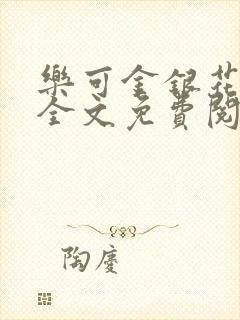 樂可金銀花
全文免費閱
陶慶